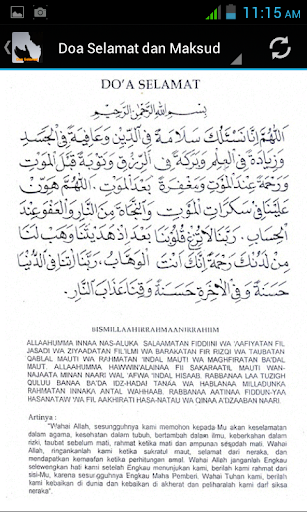 11:15 AM
Doa Selamat dan Maksud
DO'A SELAMAT
بِسْمِ اللهِ الرَّحْمٰنِ الرَّحِيْمِ
اَللّٰهُمَّ اِنَّا نَسْئَلُكَ سَلَامَةً فِى الدِّيْنِ وَعَافِيَةً فِى الْجَسَدِ
وَزِيَادَةً فِى الْعِلْمِ وَبَرَكَةً فِى الرِّزْقِ وَتَوْبَةً قَبْلَ الْمَوْتِ
وَرَحْمَةً عِنْدَ الْمَوْتِ وَمَغْفِرَةً بَعْدَ الْمَوْتِ. اَللّٰهُمَّ هَوِّنْ
عَلَيْنَا فِى سَكَرَاتِ الْمَوْتِ وَالنَّجَاةَ مِنَ النَّارِ وَالْعَفْوَ عِنْدَ
الْحِسَابِ. رَبَّنَا لَا تُزِغْ قُلُوْبَنَا بَعْدَ اِذْ هَدَيْتَنَا وَهَبْ لَنَا
مِنْ لَدُنْكَ رَحْمَةً اِنَّكَ اَنْتَ الْوَهَّابُ، رَبَّنَا اٰتِنَا فِى الدُّنْيَا
حَسَنَةً وَ فِى الْاٰخِرَةِ حَسَنَةً وَقِنَا عَذَابَ النَّارِ.
BISMILLAAHIRRAHMAANIRRAHIIM
ALLAAHUMMA INNAA NAS-ALUKA SALAAMATAN FIDDIINI WA 'AAFIYATAN FIL
JASADI WA ZIYAADATAN FIL'ILMI WA BARAKATAN FIR RIZQI WA TAUBATAN
QABLAL MAUTI WA RAHMATAN 'INDAL MAUTI WA MAGHFIRATAN BA'DAL
MAUT. ALLAHUMMA HAWWIN'ALAINAA FII SAKARAATIL MAUTI WAN-
NAJAATA MINAN NAARI WAL 'AFWA 'INDAL HISAAB. RABBANAA LAA TUZIGH
QULUU BANAA BA'DA IDZ-HADAI TANAA WA HABLANAA MILLADUNKA
RAHMATAN INNAKA ANTAL WAHHAAB. RABBANAA AATINAA FIDDUN-YAA
HASANATAW WA FIL AAKHIRATI HASA-NATAU WA QINAA A'DZAABAN NAARI.
Artinya :
"Wahai Allah, sesungguhnya kami memohon kepada-Mu akan keselamatan
dalam agama, kesehatan dalam tubuh, bertambah dalam ilmu, keberkahan dalam
rizki, taubat sebelum mati, rahmat ketika mati dan ampunan sesudah mati. Wahai
Allah, ringankanlah kami ketika sakratul maut, selamat dari neraka, dan
mendapatkan kemaafan ketika perhitungan amal. Wahai Allah janganlah Engkau
selewengkan hati kami setelah Engkau menunjukan kami, berilah kami rahmat dari
sisi-Mu, karena sesungguhnya Engkau Maha Pemberi. Wahai Tuhan kami, berilah
kami kebaikan di dunia dan kebaikan di akherat dan peliharalah kami dar siksa
neraka".